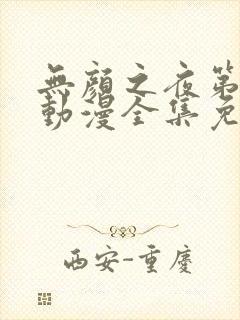 無顏之夜第
動漫全集免
西安-重慶